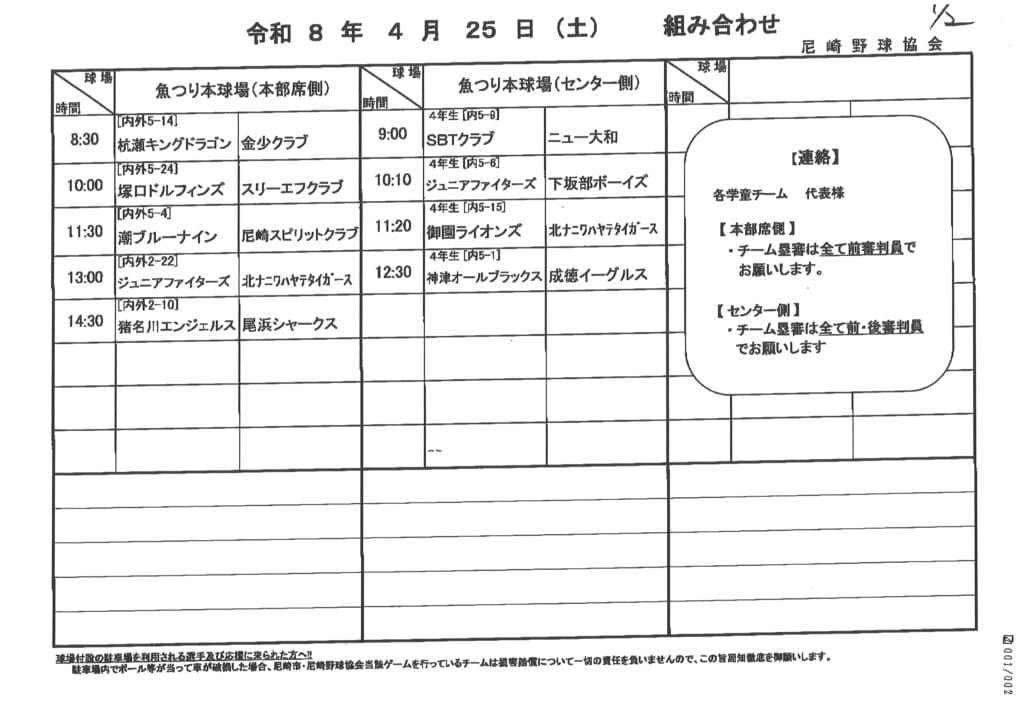 1/2
令和 8 年 4 月 25 日 (土) 組み合わせ
尼崎野球協会
球場
時間
魚つり本球場(本部席側)
球場
時間
魚つり本球場(センター側)
球場
時間
8:30
[内外5-14]
杭瀬キングドラゴン 金少クラブ
9:00
4年生 [内5-9]
SBTクラブ ニュー大和
10:00
[内外5-24]
塚口ドルフィンズ スリーエフクラブ
10:10
4年生 [内5-6]
ジュニアファイターズ 下坂部ボーイズ
11:30
[内外5-4]
潮ブルーナイン 尼崎スピリットクラブ
11:20
4年生 [内5-15]
御園ライオンズ 北ナニワハヤテタイガース
13:00
[内外2-22]
ジュニアファイターズ 北ナニワハヤテタイガース
12:30
4年生 [内5-1]
神津オールブラックス 成徳イーグルス
14:30
[内外2-10]
猪名川エンジェルス 尾浜シャークス
【連絡】
各学童チーム 代表様
【本部席側】
・チーム塁審は全て前審判員で
お願いします。
【センター側】
・チーム塁審は全て前・後審判員
でお願いします
球場付設の駐車場を利用される選手及び応援に来られた方へ!!
駐車場内でボール等が当って車が破損した場合、尼崎市・尼崎野球協会当該ゲームを行っているチームは損害賠償について一切の責任を負いませんので、この旨周知徹底を御願いします。
001/002